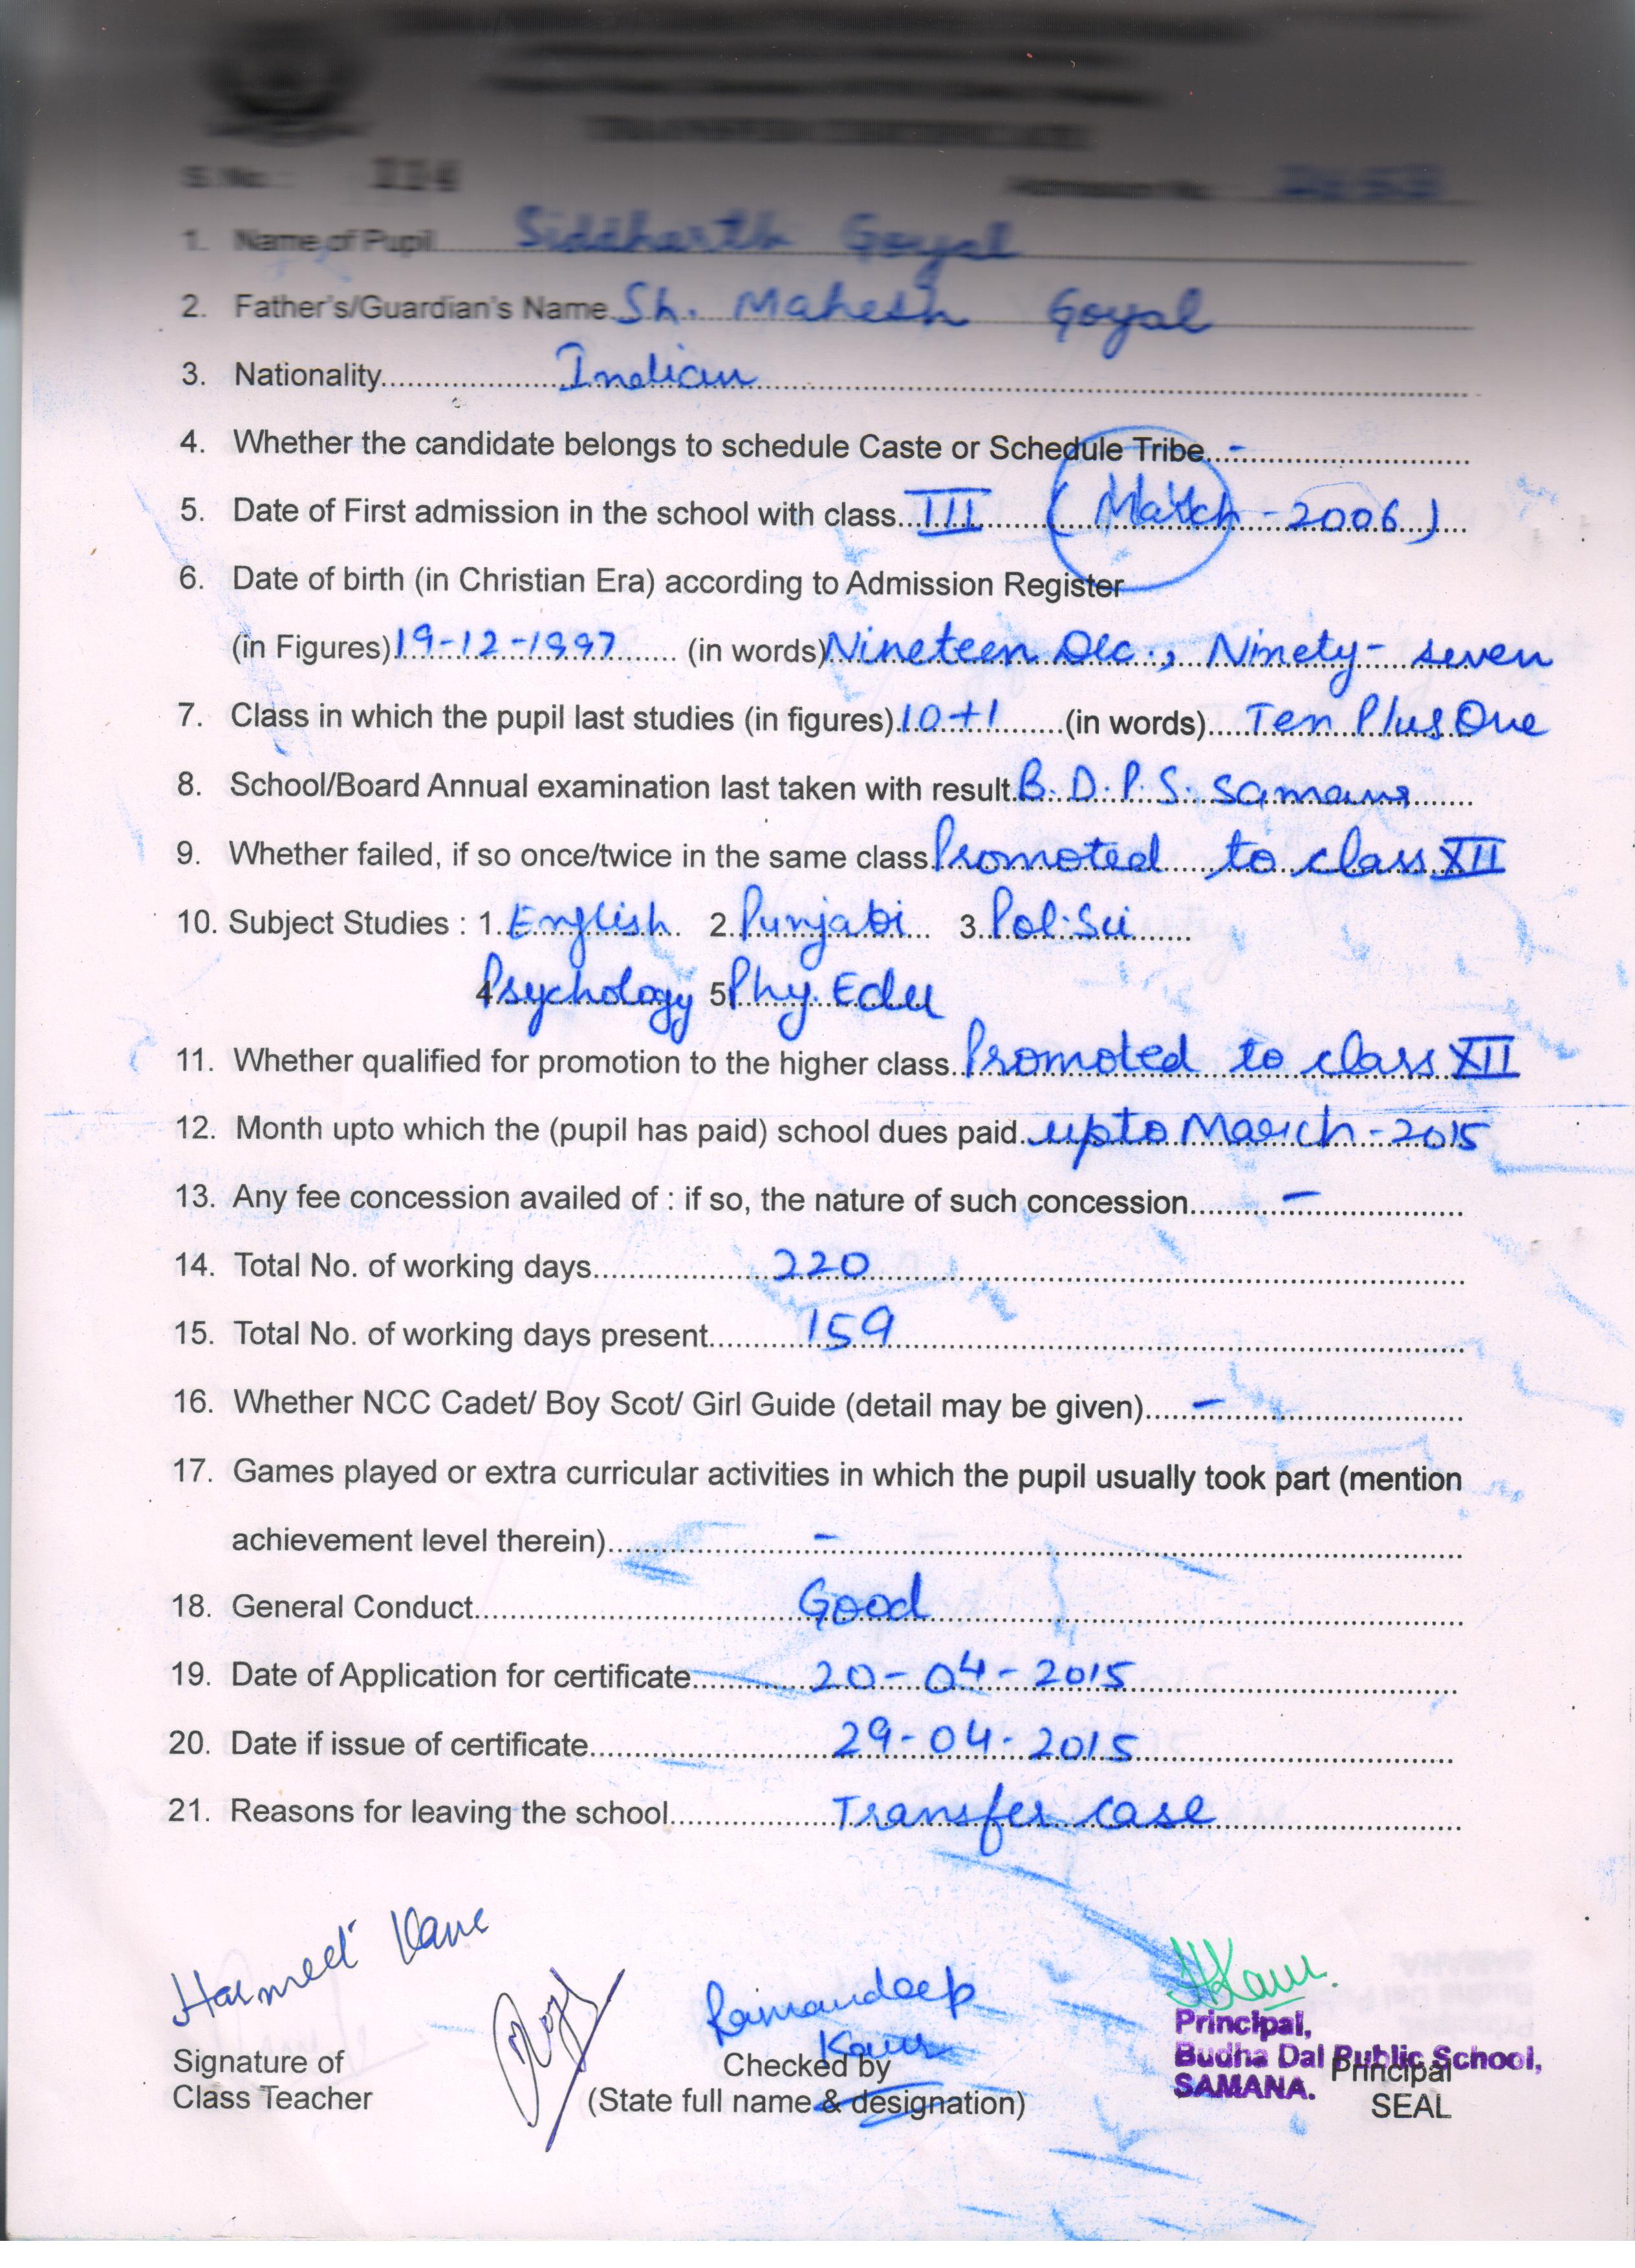 TRANSFER CERTIFICATE
S. No.: 114 Admission No.
1. Name of Pupil Siddharth Goyal
2. Father's/Guardian's Name Sh. Mahesh Goyal
3. Nationality Indian
4. Whether the candidate belongs to schedule Caste or Schedule Tribe -
5. Date of First admission in the school with class III (March - 2006)
6. Date of birth (in Christian Era) according to Admission Register
(in Figures) 19-12-1997 (in words) Nineteen Dec., Ninety-seven
7. Class in which the pupil last studies (in figures) 10+1 (in words) Ten Plus One
8. School/Board Annual examination last taken with result B. D. P. S. Samana
9. Whether failed, if so once/twice in the same class Promoted to class XII
10. Subject Studies : 1. English 2. Punjabi 3. Pol. Sci
4 Psychology 5 Phy. Edu
11. Whether qualified for promotion to the higher class. Promoted to class XII
12. Month upto which the (pupil has paid) school dues paid upto March - 2015
13. Any fee concession availed of : if so, the nature of such concession -
14. Total No. of working days 220
15. Total No. of working days present 159
16. Whether NCC Cadet/ Boy Scot/ Girl Guide (detail may be given) -
17. Games played or extra curricular activities in which the pupil usually took part (mention
achievement level therein) -
18. General Conduct Good
19. Date of Application for certificate 20-04-2015
20. Date if issue of certificate 29-04-2015
21. Reasons for leaving the school Transfer case
Harmeet Kaur
Ramandeep
Kaur
HKaur.
Signature of
Class Teacher
Checked by
(State full name & designation)
Principal,
Budha Dal Public School,
SAMANA.
Principal
SEAL